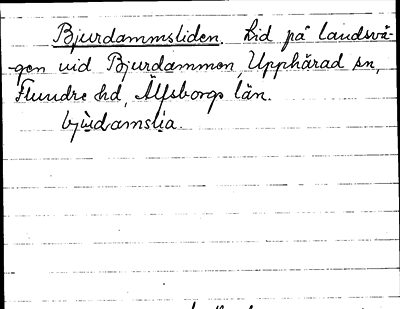 Bjurdammsliden. Lid på landsvä-
gen vid Bjurdammen, Upphärad sn,
Flundre hd, Älfsborgs län.
bju̇damslia.